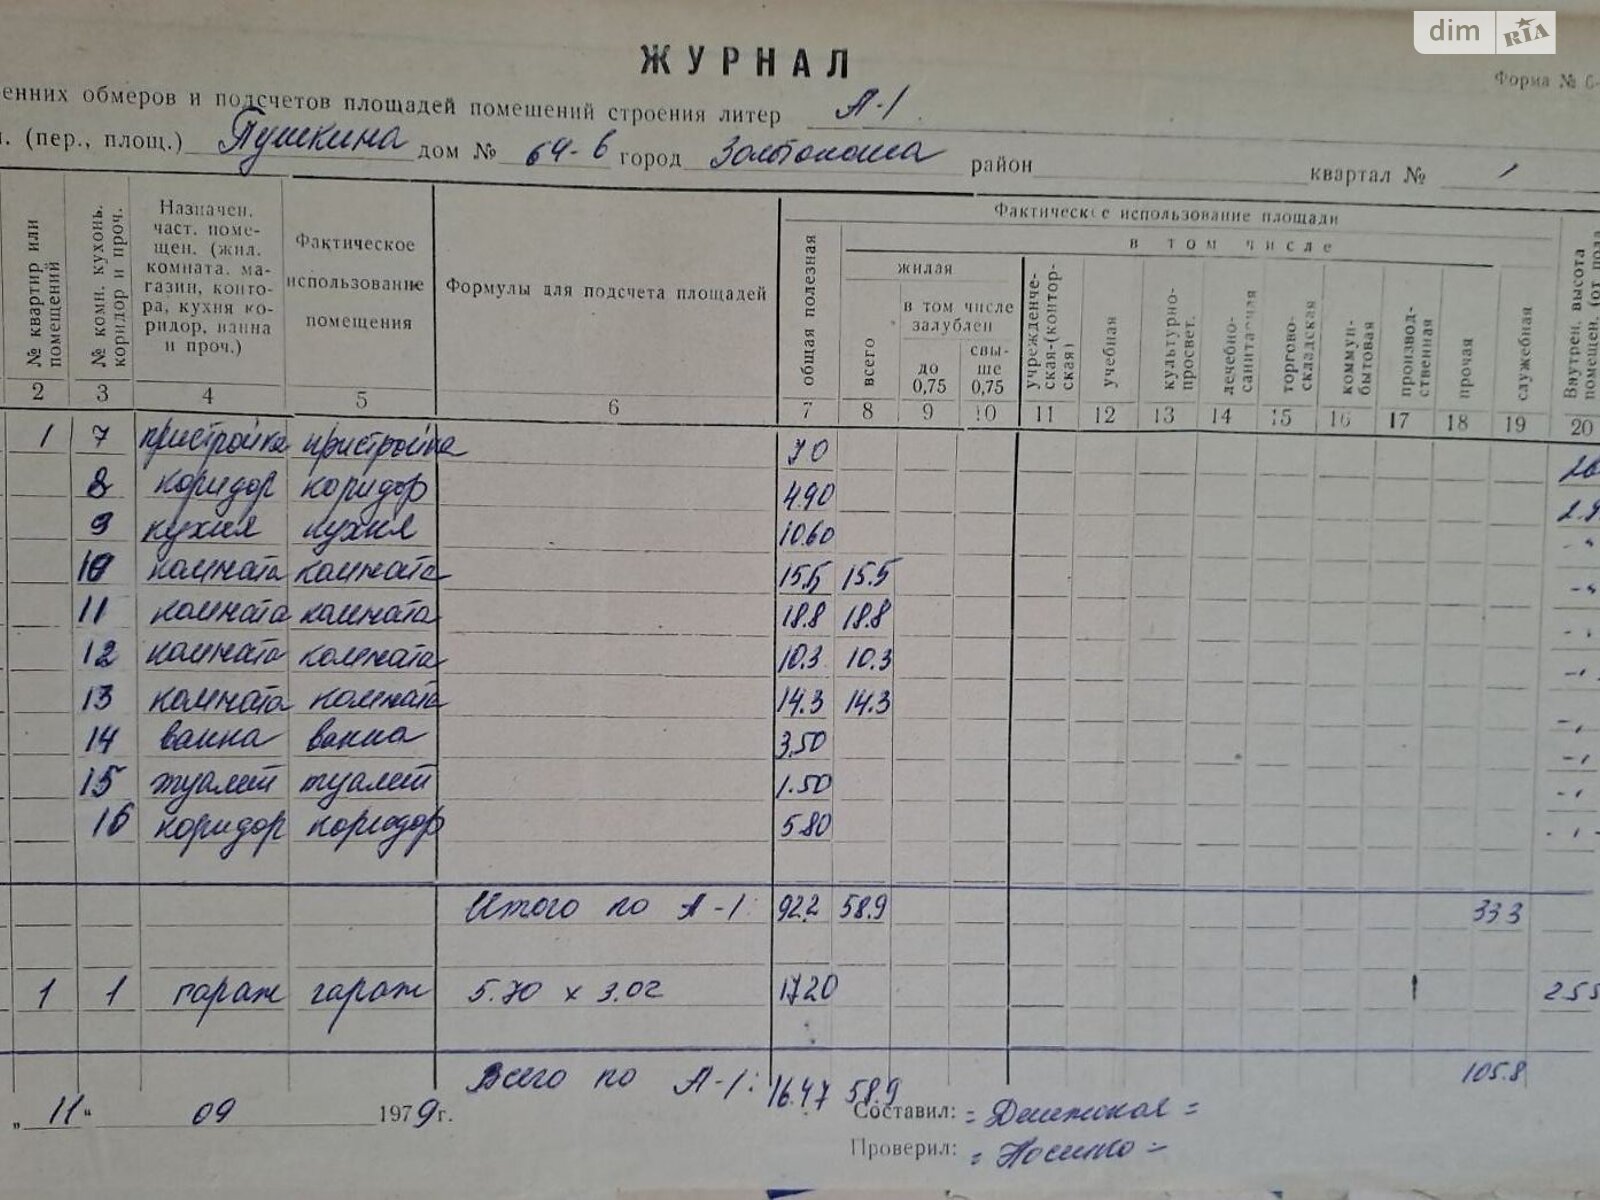 dim RIA
ЖУРНАЛ
Форма № 6-
енних обмеров и подсчетов площадей помешений строения литер А-1
(пер., площ.) Пушкина дом № 64-в город Золотоноша район квартал № 1
№ квартир или помещений
№ комн. кухонь. коридор и проч.
Назначен. част. поме-
щен. (жил.
комната. ма-
газин, конто-
ра, кухня ко-
ридор, ванна
и проч.)
Фактическое
использование
помещения
Формулы для подсчета площадей
Фактическсе использование площади
общая полезная
в том числе
жилая
всего
в том числе
залублен
до 0,75
свы-
ше
0,75
учрежденче-
ская-(контор-
ская)
учебная
культурно-
просвет.
лечебно-
санитарная
торгово-
складская
коммун-
бытовая
производ-
ственная
прочая
служебная
Внутрен. высота
помещен. (от пола
2 3 4 5 6 7 8 9 10 11 12 13 14 15 16 17 18 19 20
1 7 пристройка пристройка 7 0
8 коридор коридор 4.90
9 кухня кухня 10.60
10 комната комната 15.5 15.5
11 комната комната 18.8 18.8
12 комната комната 10.3 10.3
13 комната комната 14.3 14.3
14 ванна ванна 3.50
15 туалет туалет 1.50
16 коридор коридор 5.80
Итого по А-1: 92.2 58.9 33 3
1 1 гараж гараж 5.70 х 3.02 17.20 2.55
Всего по А-1: 16.47 58.9 105.8
„ 11 " 09 1979 г.
Составил:
Проверил: = Носенко =